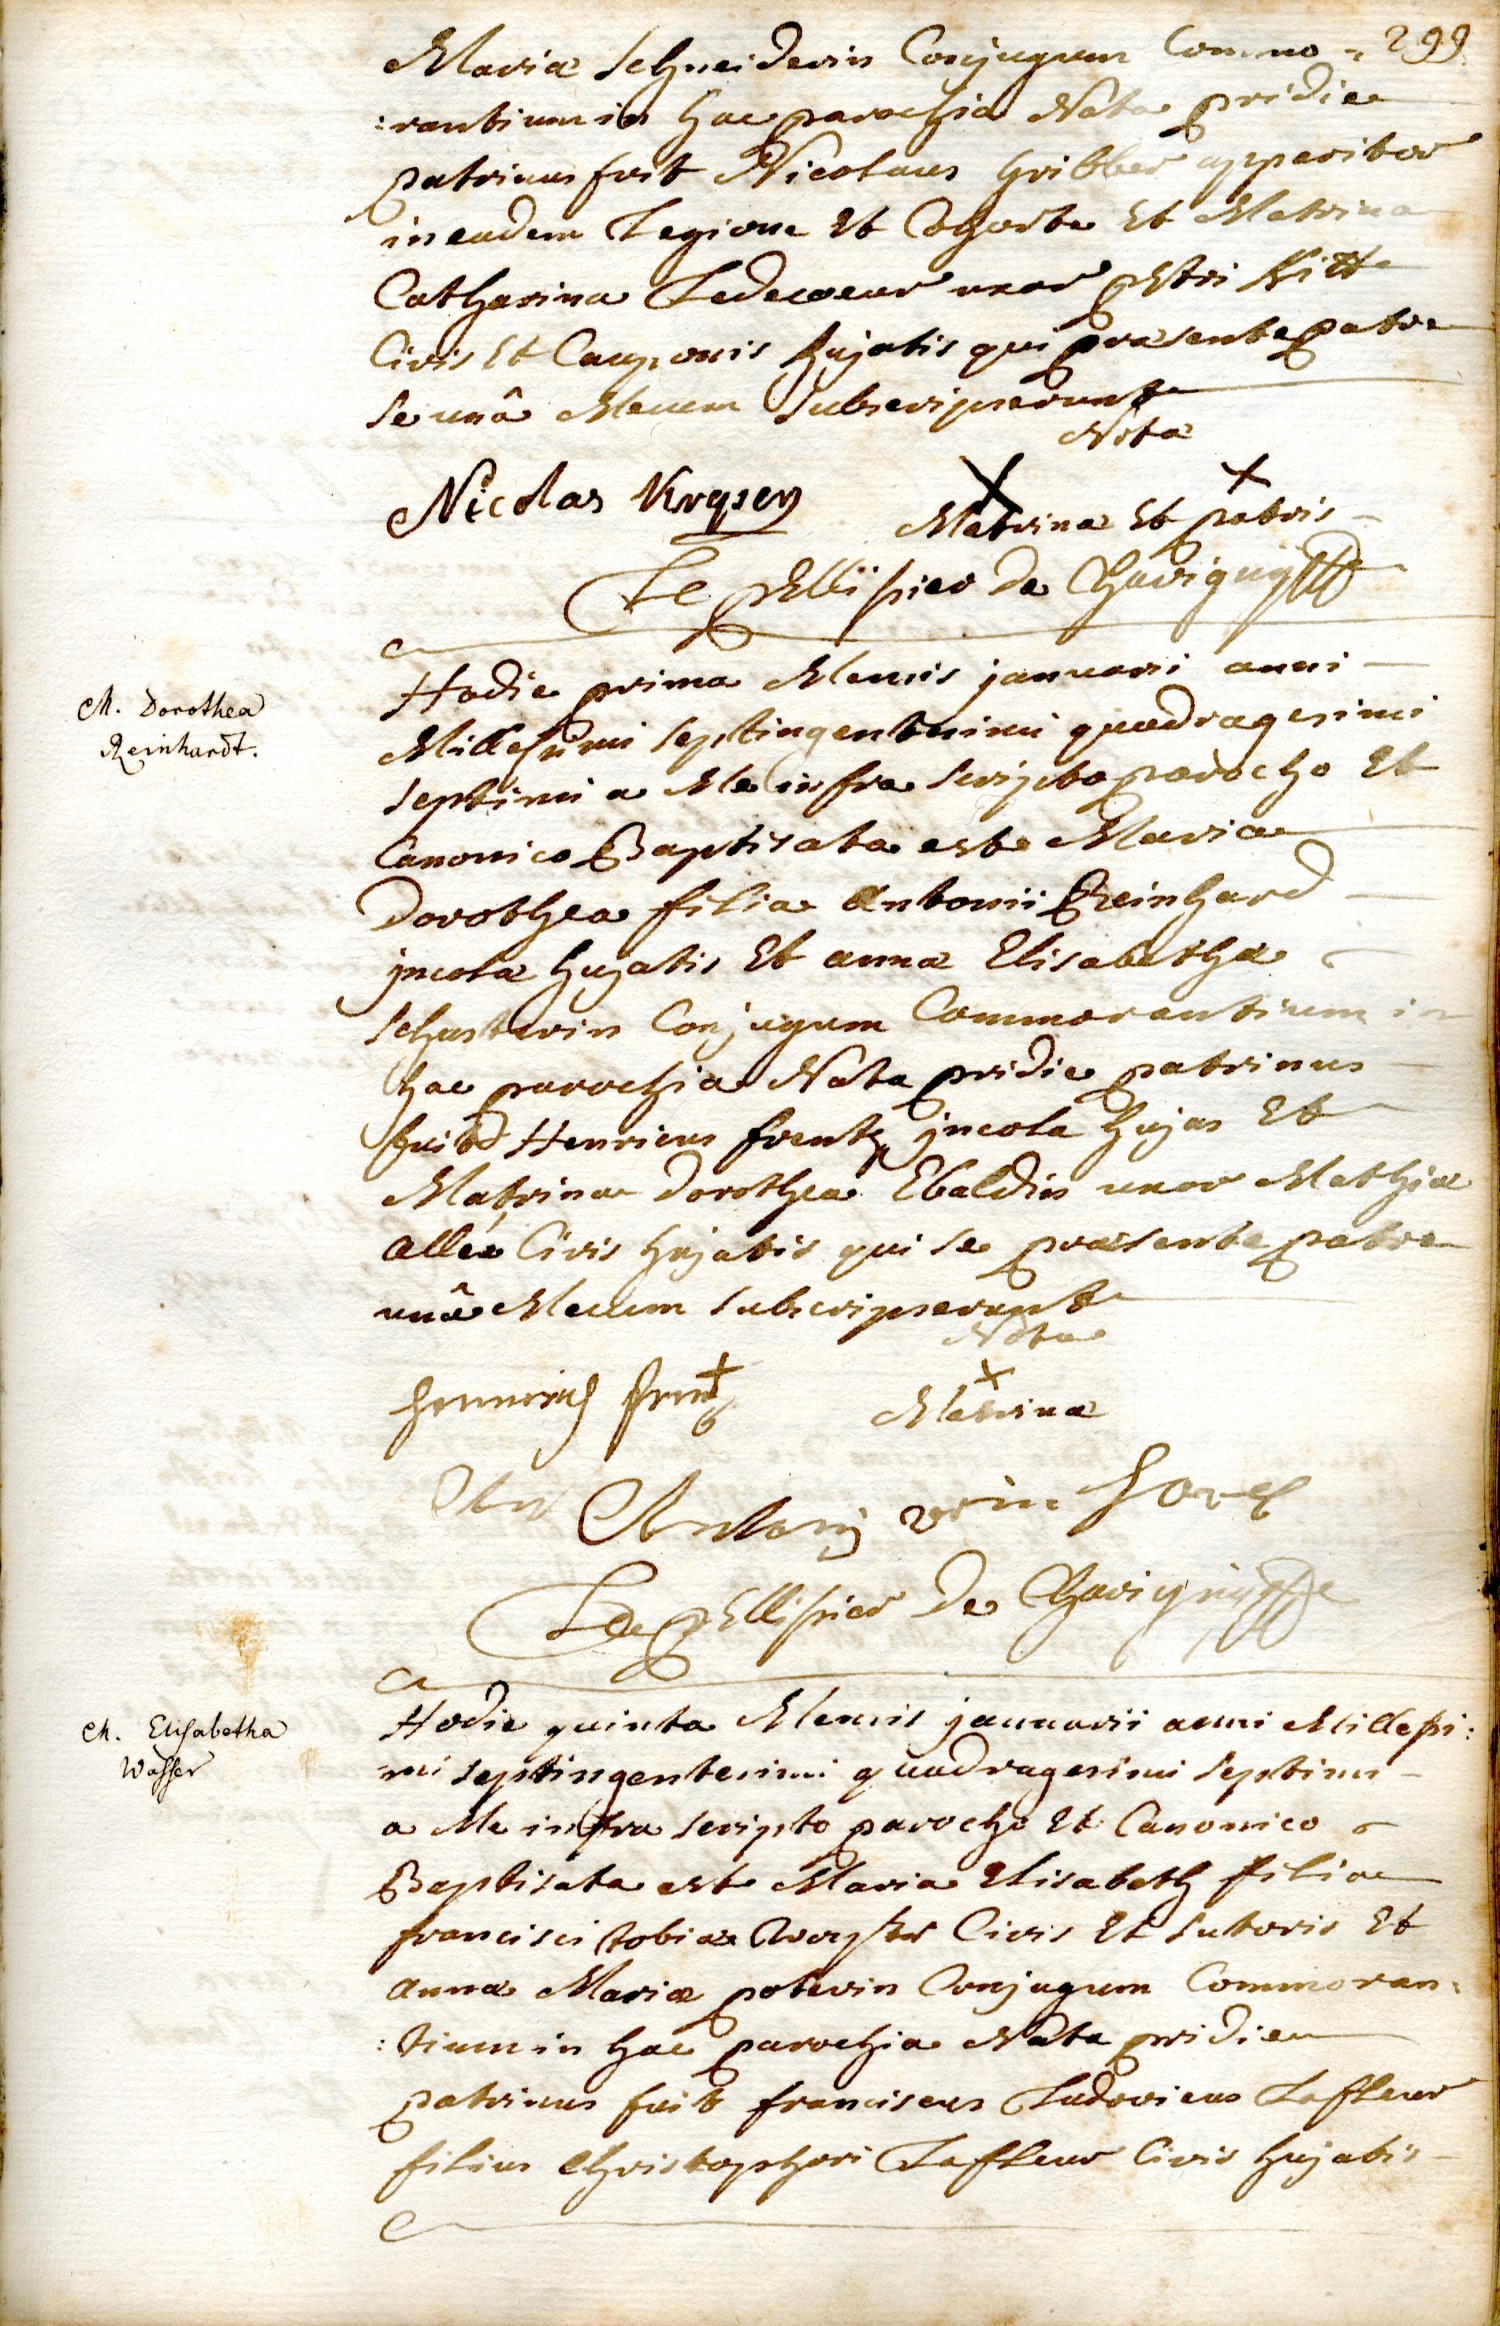 299.
Mariæ Schneiderin Conjugum Commo =
:rantium in hac parochia Nata pridie
patrinus fuit Nicolaus Gribler apparitor
in eadem Legione Et Cohorte Et Matrina
Catharina Ledecoeur uxor petri Witt
Civis Et Cauponis hujatis qui præsente patre
se unâ Mecum Subscripserunt
Nota
Nicolas
X X
Matrinæ Et patris
Le pellissier de Chavigny
M. Dorothea
Reinhardt.
Hodie prima Mensis januarii anni
Millesimi septingentesimi quadragesimi
septimi a Me infra Scripto parocho Et
Canonico Baptisata est Maria
Dorothea filia Antonii Reinhard
jncolæ hujatis Et annæ Elisabethæ
Schusterin Conjugum Commorantium in
hac parochia Nata pridie patrinus
fuit Henricus frentz jncola hujas Et
Matrina Dorothea Ebaldin uxor Mathiæ
allée Civis hujatis qui se præsente patre
unâ Mecum Subscripserunt
Nota
X
Matrinæ
Antonij
Le pellissier de Chavigny
M. Elisabetha
Wasser
Hodie quinta Mensis januarii anni Millesi:
mi septingentesimi quadragesimi septimi
a Me infra scripto parocho Et Canonico
Baptisata est Maria Elisabeth filia
francisci tobiæ Civis Et Sutoris Et
annæ Mariæ poterin Conjugum Commoran:
:tium in hac parochia Nata pridie
patrinus fuit franciscus Ludovicus Lafleur
filius Christophori Lafleur Civis hujatis